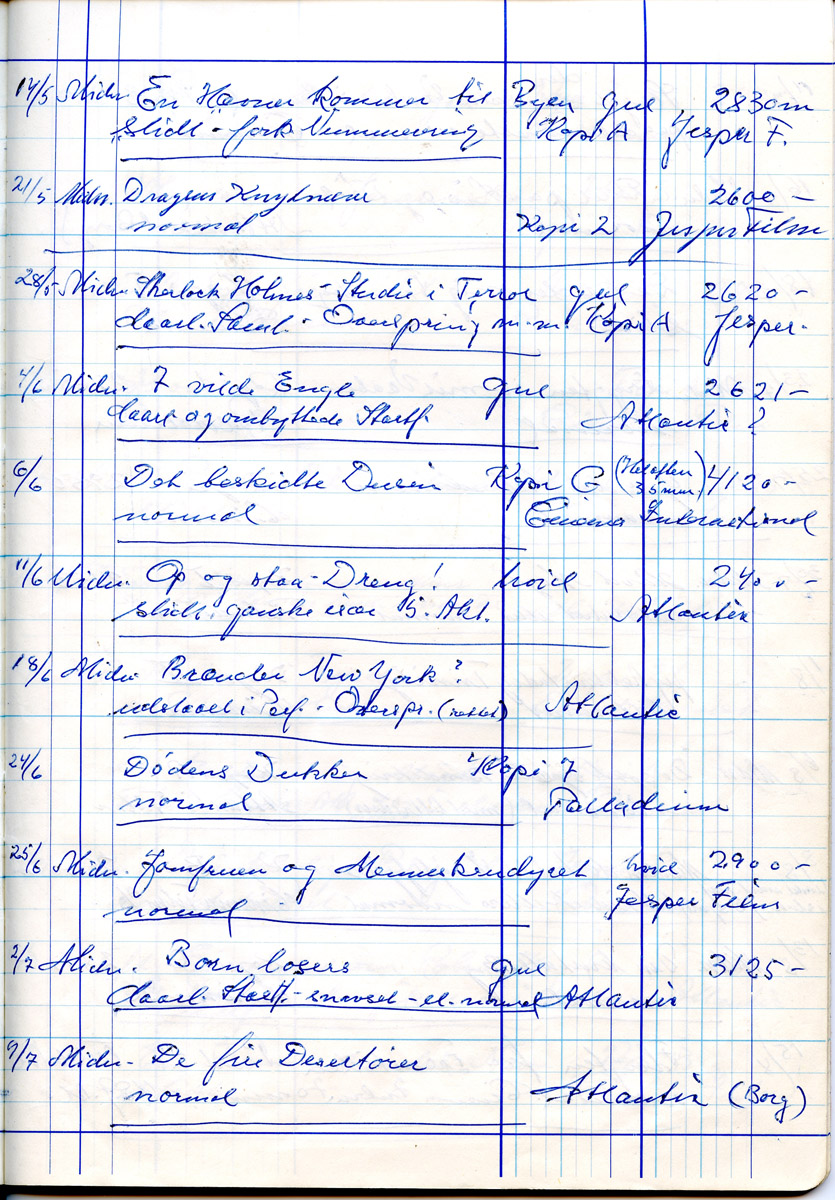 14/5 Midn. En Hævner kommer til Byen gul 2830 m
slidt - fork Nummerering Kopi A Jesper F.
21/5 Midn. Dragens 2600 -
normal Kopi 2 Jesper Film
28/5 Midn. Sherlock Holmes - Studie i Terror gul 2620 -
daarl. Saml. - Overspring m.m. Kopi A Jesper.
4/6 Midn. 7 vilde Engle gul 2621 -
daarl og ombyttede Startf. Atlantic ?
6/6 Det beskidte Dusin Kopi G (Helaften 35 mm) 4120 -
normal Cinema International
11/6 Midn. Op og staa - Dreng! hvid 2400 -
slidt: ganske især 5. Akt. Atlantic
18/6 Midn. Brænder New York ?
udslaaet i Perf. - Overspr. Atlantic
24/6 Dødens Dukker Kopi 7
normal Palladium
25/6 Midn. Jomfruen og Menneskeudyret hvid 2900 -
normal Jesper Film
2/7 Midn. Born losers gul 3125 -
daarl. Startf. - - el. normal Atlantic
9/7 Midn - De fire Desertører
normal Atlantic (Borg)